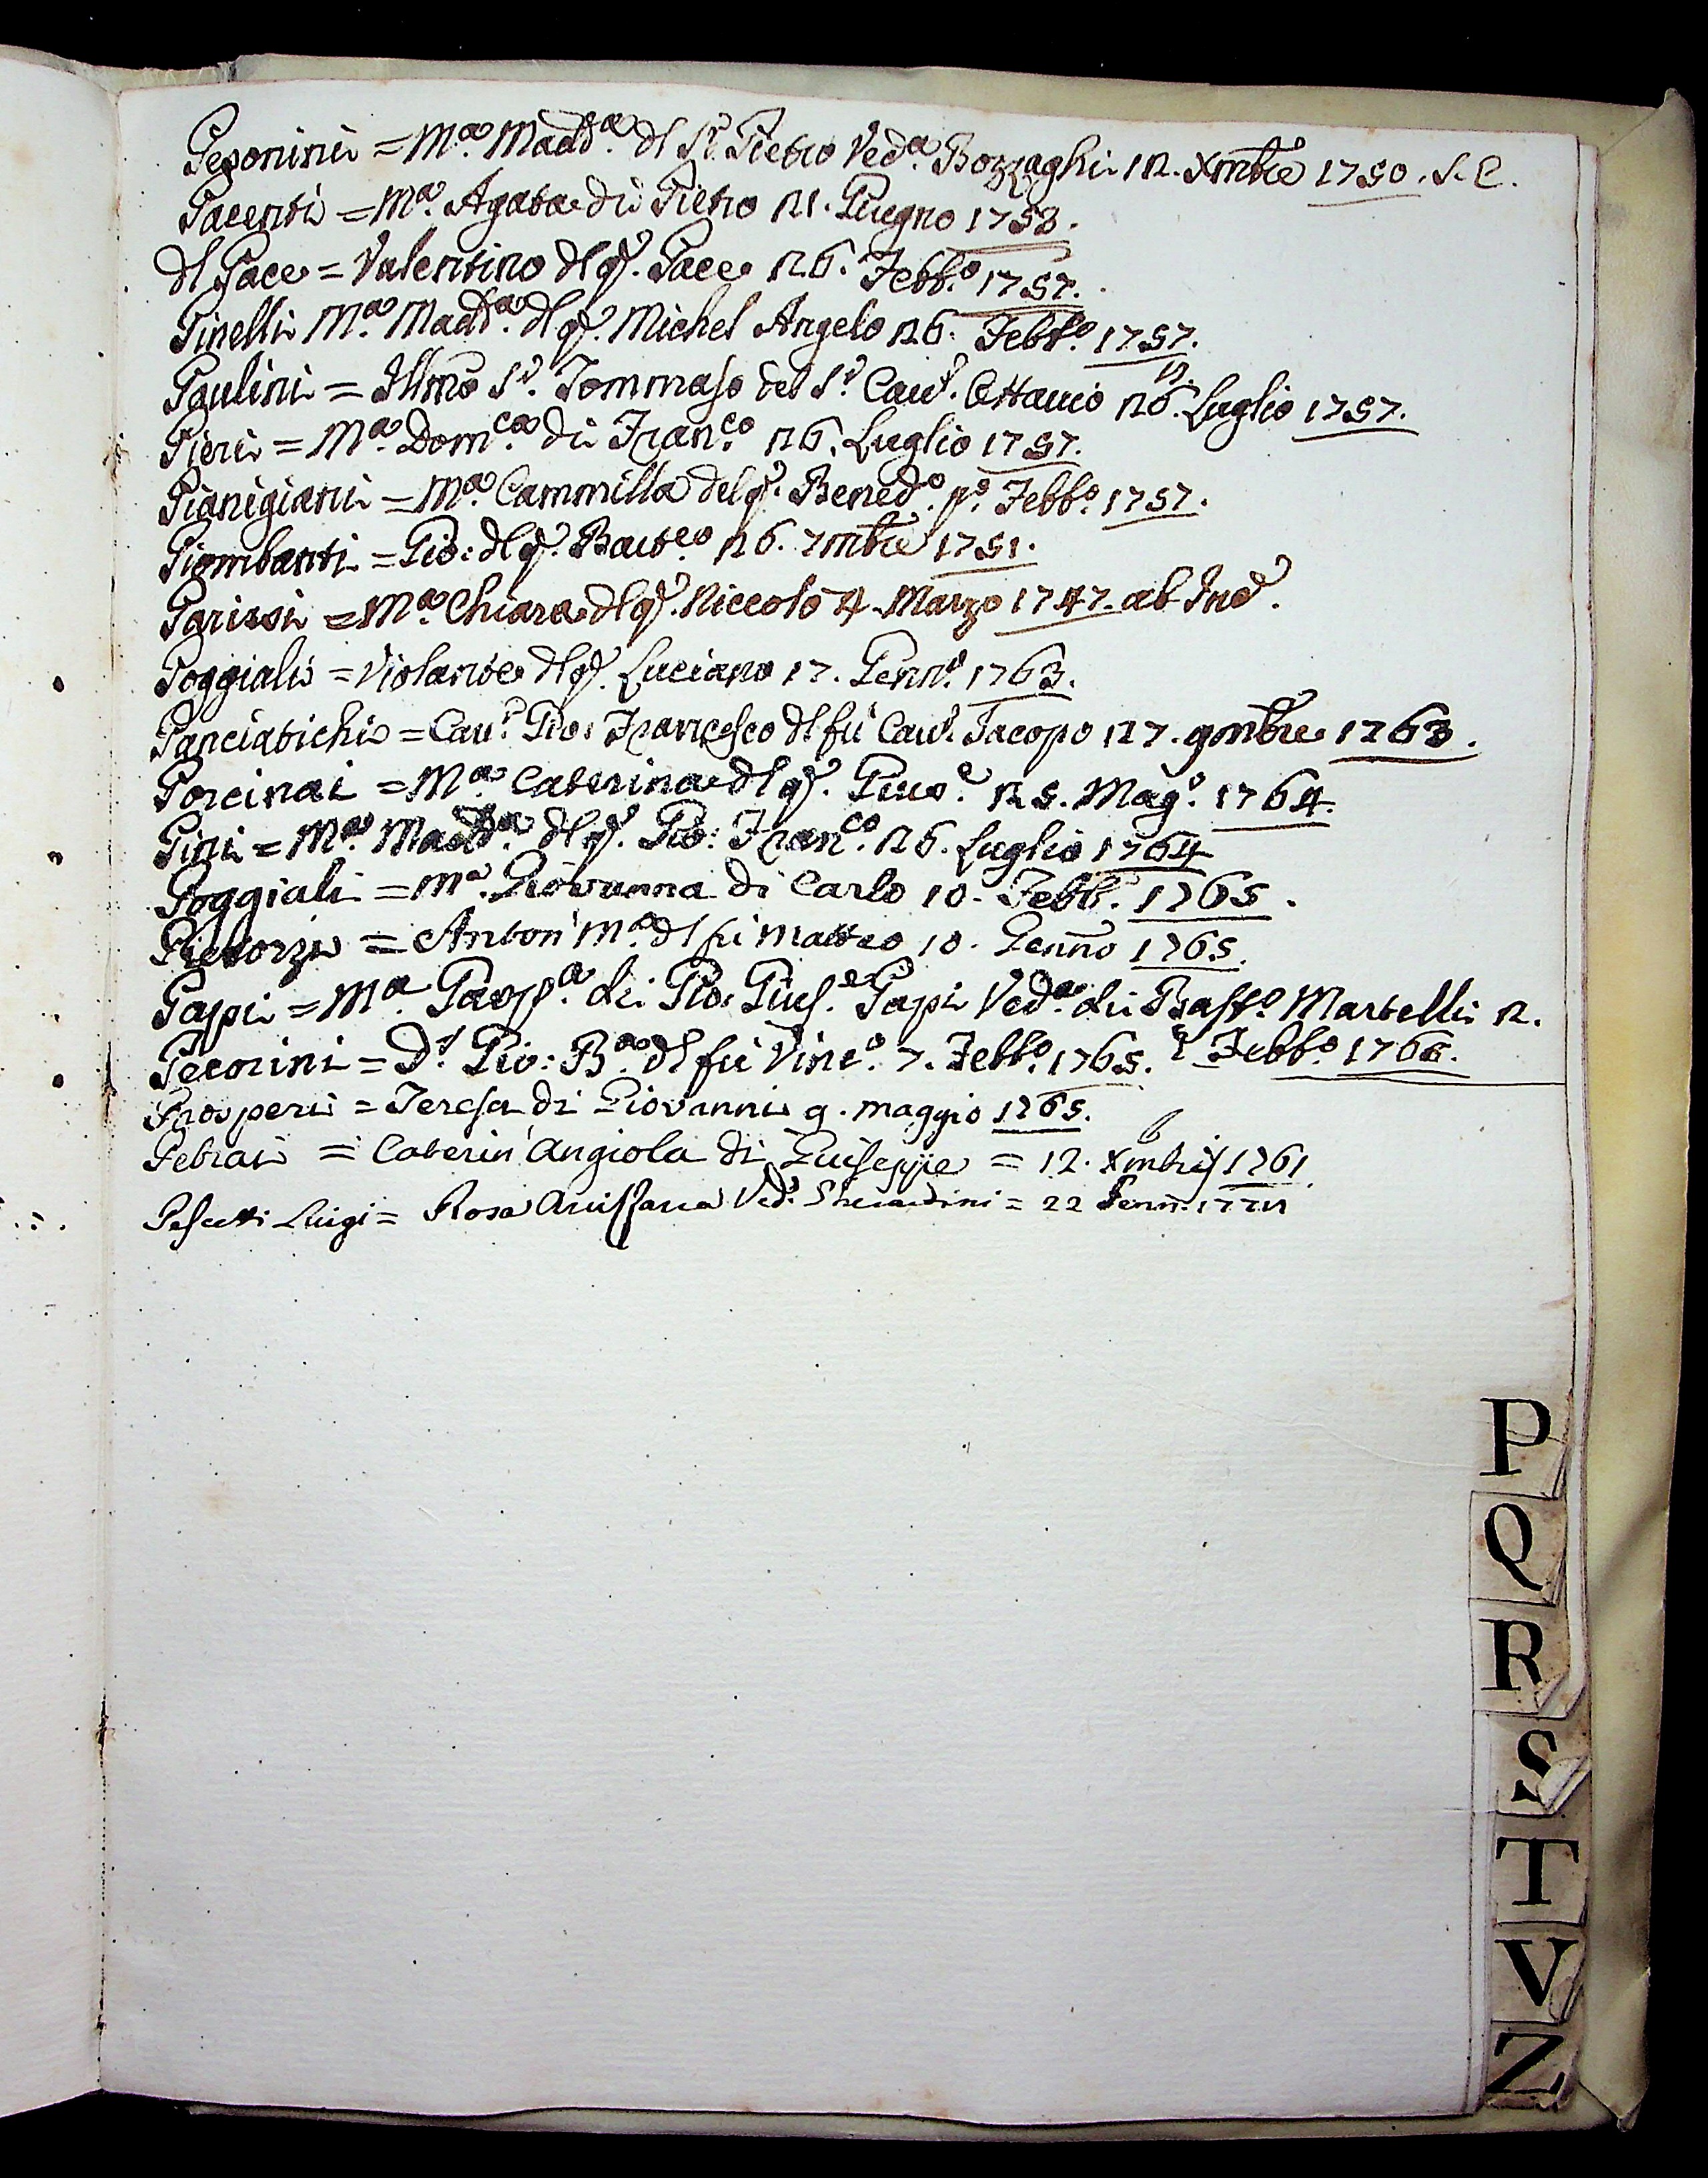 Peponini = M.ª Madd.ª dl S.r Pietro Ved.ª Bozzaghi 12. Xmbre 1750. S. C.
Pacenti = M.ª Agata di Pietro 21. Giugno 1753.
dl Pace = Valentino dl q. Pace 26. Febb.º 1757.
Pinelli M.ª Madd.ª dl q. Michel Angelo 26. Febb.º 1757.
Paulini = Illmo S.r Tommaso del S.r Cav.r Ottavio 26. Luglio 1757.
Pieri = M.ª Dom.ca di Fran.co 26. Luglio 1757.
Pianigiani = M.ª Cammilla del q. Bened.º p.º Febb.º 1757.
Piombanti = Gio: dl q. Bart.eo 26. 7mbre 1751.
Parissi = M.ª Chiara dl q. Niccolò 4. Marzo 1747. ab Inc.
Poggiali = Violante dl q. Luciano 17. Genn.º 1763.
Panciatichi = Cav.r Gio: Francesco dl fù Cav.r Jacopo 27. 9mbre 1763.
Porcinai = M.ª Caterina dl q. Gius.e 25. Mag.º 1764.
Pini = M.ª Madd.ª dl q. Gio: Fran.co 26. Luglio 1764
Poggiali = M.ª Giovanna di Carlo 10. Febb. 1765.
Anton M.ª dl fù Matteo 10. Genno 1765.
Pappi = M.ª di Gio: Gius.e Papi Ved.ª di Martelli 2.
Pecorini = D.r Gio: B.ª dl fù Vinc.º 7. Febb.º 1765. Febb.º 1766.
Prosperi = Teresa di Giovanni 9. maggio 1765.
Petrai = Caterin' Angiola di Giuseppe = 12. Xmbris 1761
Pescetti Luigi = Rosa Ved.ª = 22 Genn.
P
Q
R
S
T
V
Z